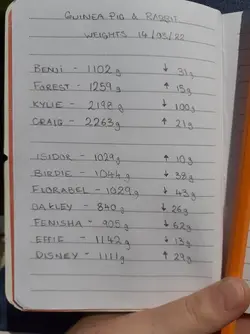 GUINEA PIG & RABBIT
WEIGHTS 14/05/22
BENJI - 1102g ↓ 31g
FOREST - 1259g ↑ 15g
KYLIE - 2198g ↓ 100g
CRAIG - 2263g ↑ 21g
ISIDOR - 1029g ↑ 10g
BIRDIE - 1044g ↓ 38g
FLORABEL - 1029g ↓ 43g
OAKLEY - 840g ↓ 26g
FENISHA - 905g ↓ 62g
EFFIE - 1142g ↓ 13g
DISNEY - 1111g ↑ 29g